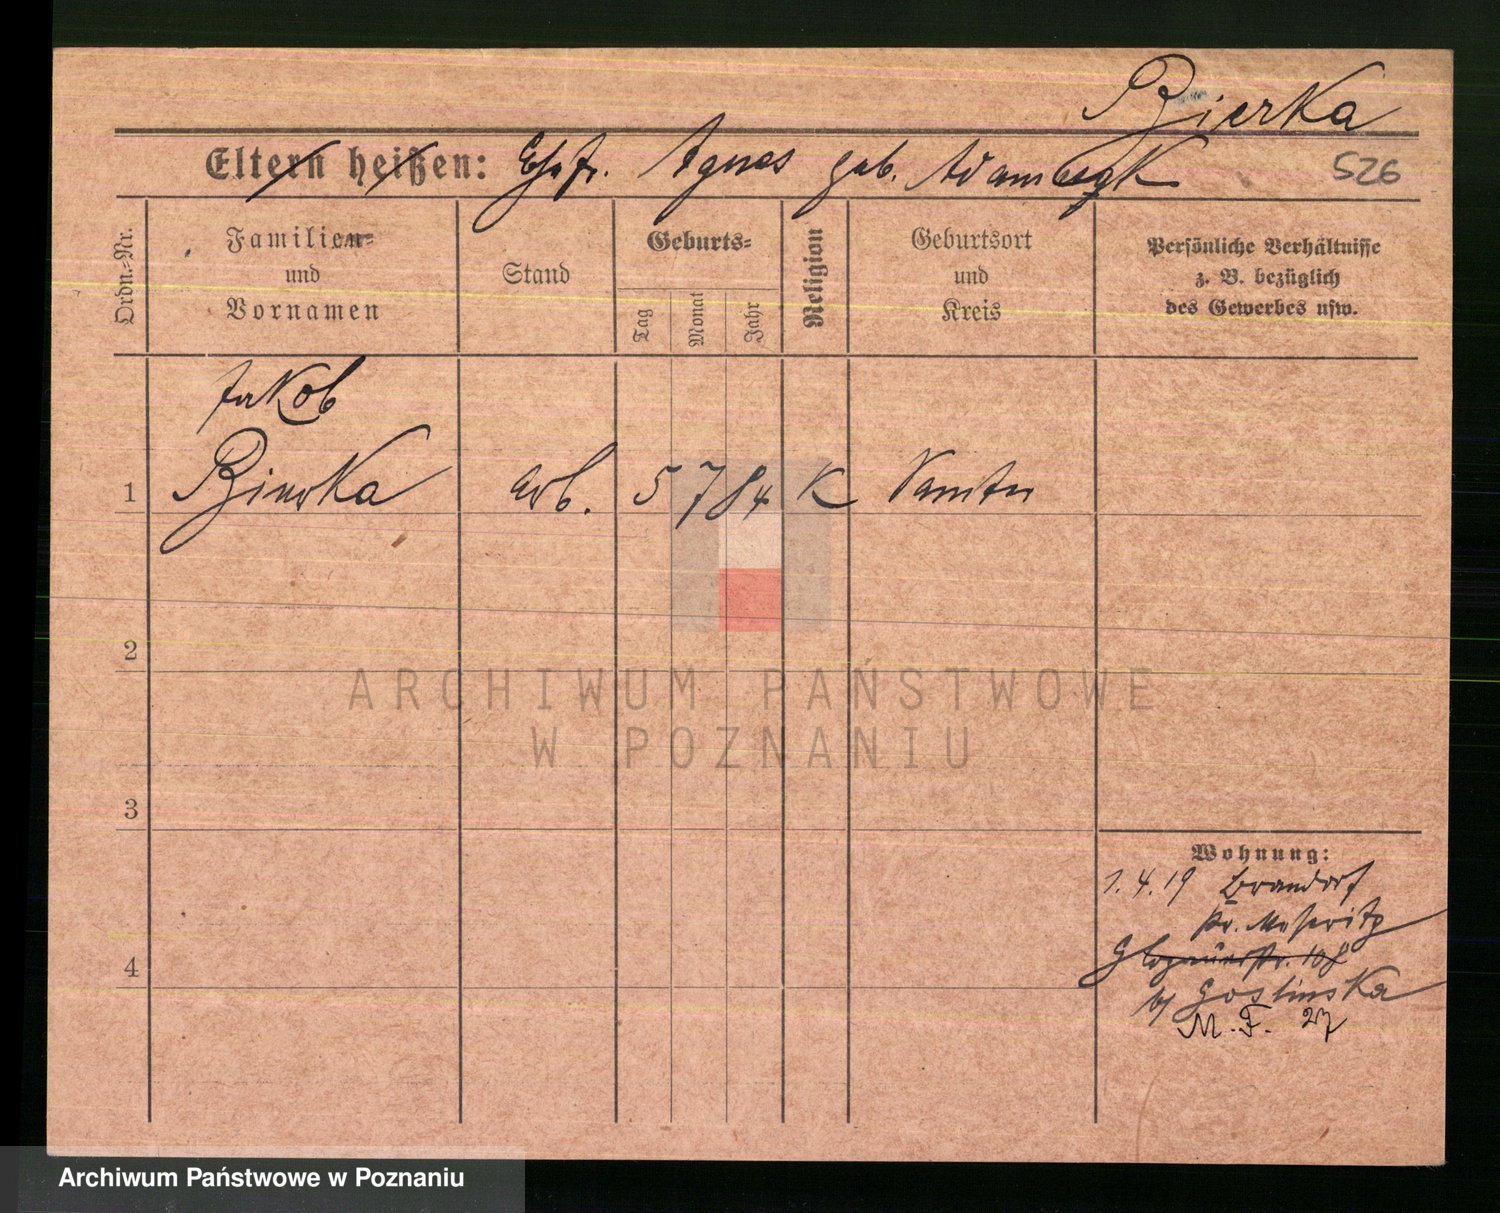 Bierka
Eltern heißen: Ehefr. Agnes geb. Adamczyk
526
Ordn.-Nr.
Familien-
und
Vornamen
Stand
Geburts-
Tag
Monat
Jahr
Religion
Geburtsort
und
Kreis
Persönliche Verhältnisse
z. B. bezüglich
des Gewerbes usw.
Jakob
1 Bierka Arb. 5 7 84 K Samter
2
ARCHIWUM PAŃSTWOWE
W POZNANIU
3
4
Wohnung:
1.4.19 Brandorf
Kr. Meseritz
Glogauerstr. 108
b/ Goslinska
M. F. 27
Archiwum Państwowe w Poznaniu